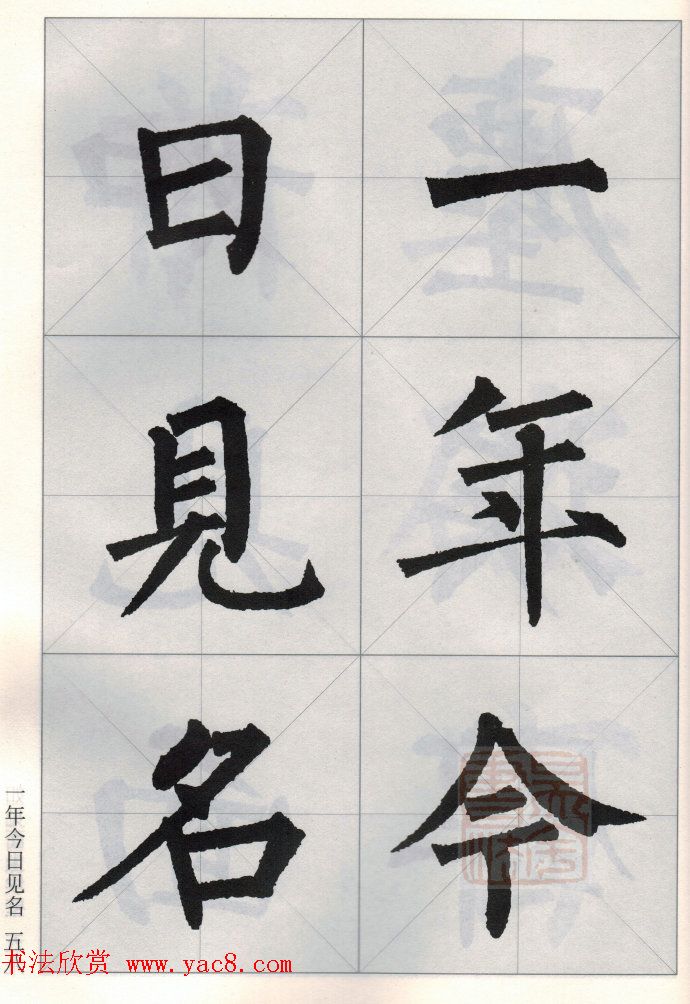 一年今
日見名
一年今日见名 五
书法欣赏 www.yac8.com